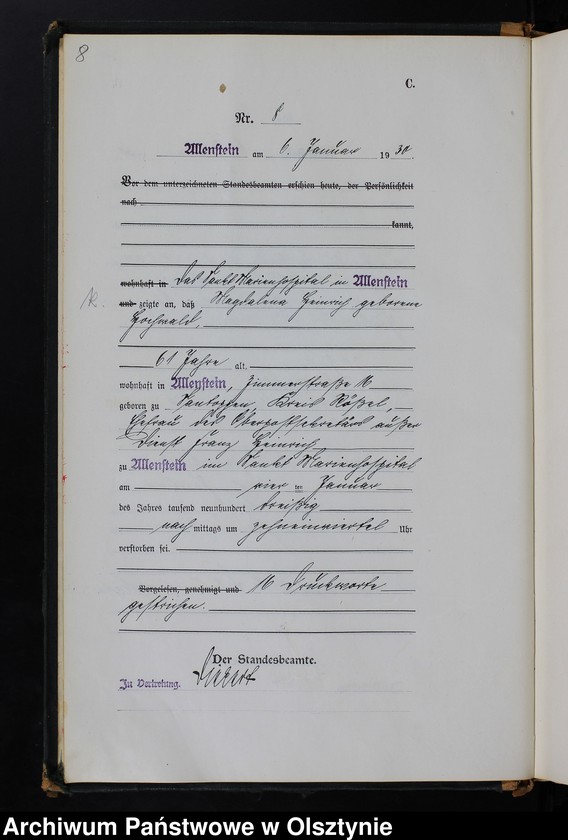 8
C.
Nr. 8
Allenstein am 6. Januar 1930.
Vor dem unterzeichneten Standesbeamten erschien heute, der Persönlichkeit
nach
kannt,
wohnhaft in Das Sankt Marienhospital in Allenstein
und zeigte an, daß Magdalena Heinrich geborene
Hochwald,
61 Jahre alt,
wohnhaft in Allenstein, Zimmerstraße 16
geboren zu Santoppen, Kreis Rößel,
Ehefrau des Oberpostsekretärs außer
Dienst Franz Heinrich
zu Allenstein im Sankt Marienhospital
am vier ten Januar
des Jahres tausend neunhundert dreißig
nach mittags um zehneinviertel Uhr
verstorben sei.
Vorgelesen, genehmigt und 16 Druckworte
gestrichen.
Der Standesbeamte.
In Vertretung.
Archiwum Państwowe w Olsztynie